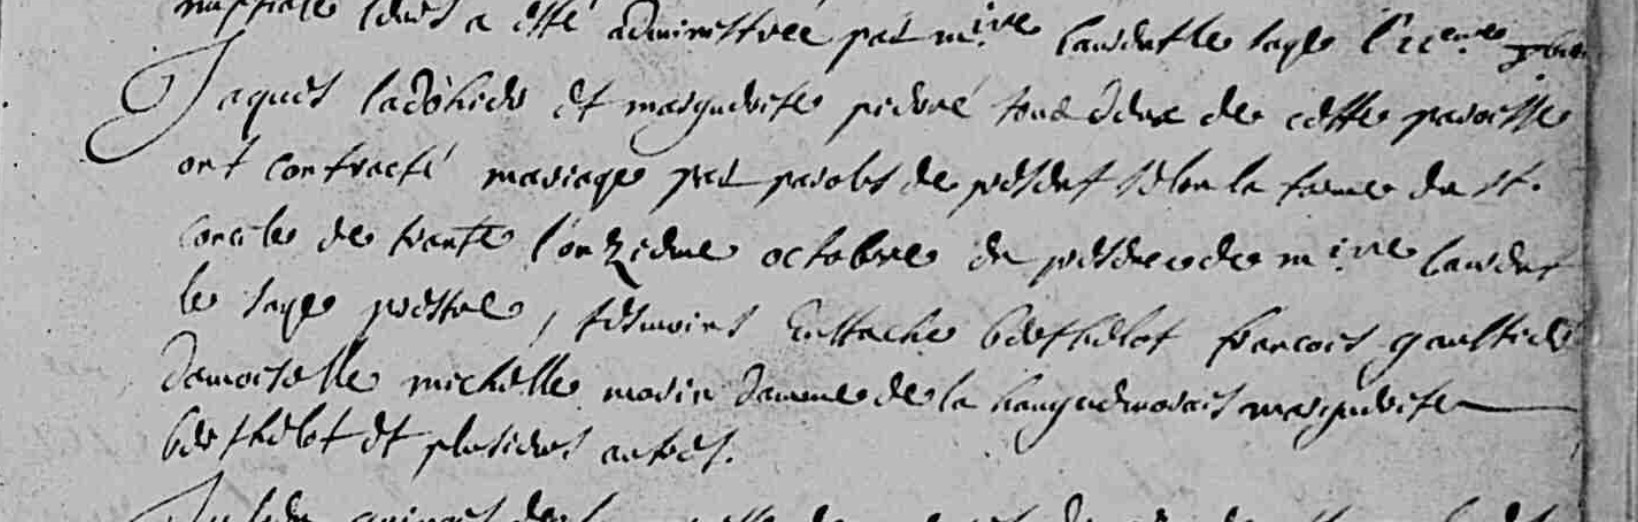 nuptiale leur a esté administrée par m.ire laurent le sage
Jaques ladohieu et marguerite pierre tous deux de cette paroisse
ont contracté mariage par parolles de present selon la forme du st.
concile de trante l'onzieme octobre en presence de m.ire laurent
le sage prestre, tesmoins Eustache berthelot francois gaultier
damoiselle michelle morin damme de la marguerite
berthelot et plusieurs autres.